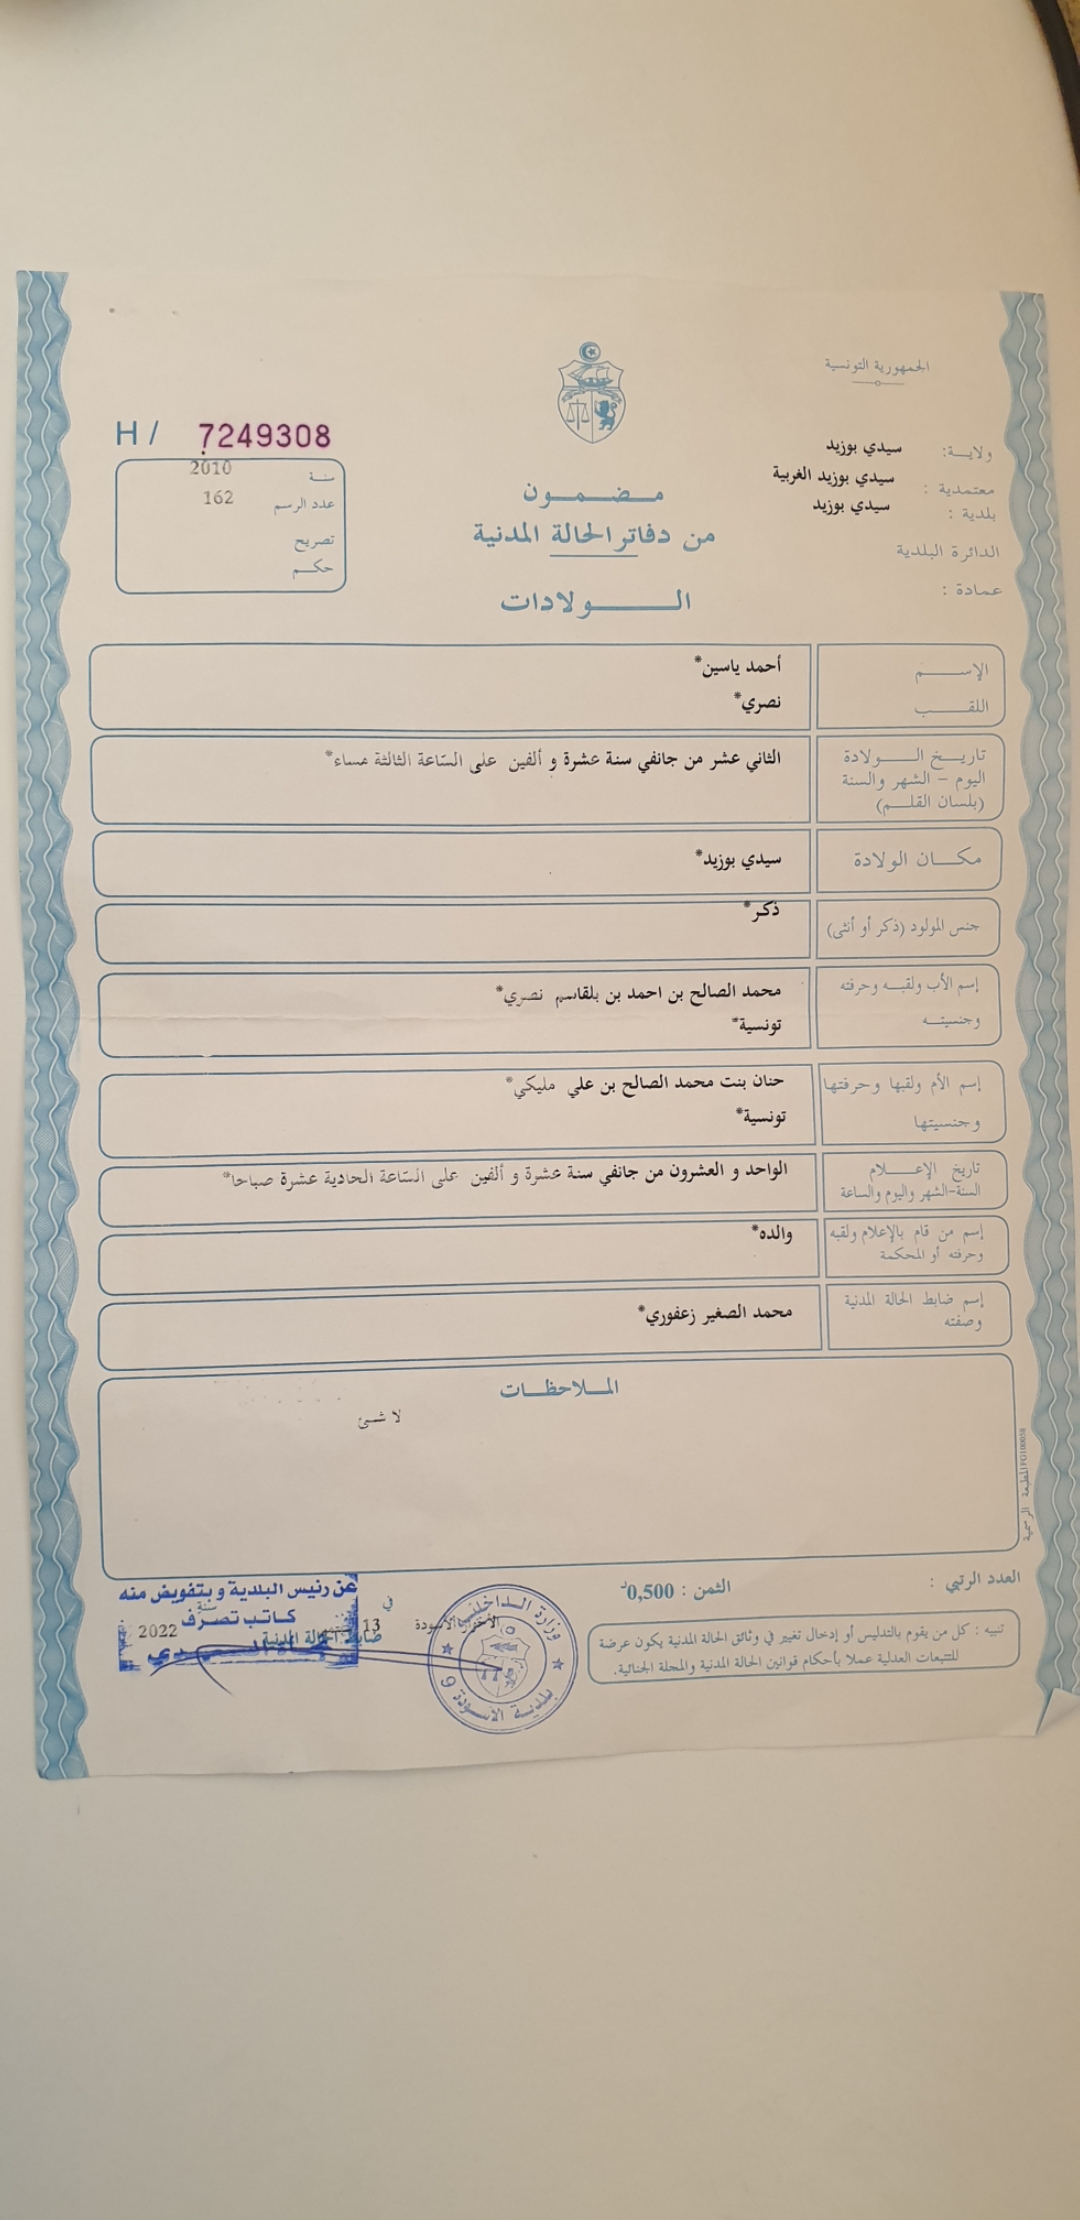 الجمهورية التونسية
ولايــة: سيدي بوزيد
معتمدية : سيدي بوزيد الغربية
بلدية : سيدي بوزيد
الدائرة البلدية
عمادة :
مـضـمـون
من دفاتر الحالة المدنية
الـولادات
H / 7249308
سنة 2010
عدد الرسم 162
تصريح
حكم
الإسم أحمد ياسين*
اللقب نصري*
تاريخ الـولادة
اليوم - الشهر والسنة
(بلسان القلم)
الثاني عشر من جانفي سنة عشرة و ألفين على السّاعة الثالثة مساء*
مكان الولادة سيدي بوزيد*
جنس المولود (ذكر أو أنثى) ذكر*
إسم الأب ولقبه وحرفته محمد الصالح بن احمد بن بلقاسم نصري*
وجنسيته تونسية*
إسم الأم ولقبها وحرفتها حنان بنت محمد الصالح بن علي مليكي*
وجنسيتها تونسية*
تاريخ الإعلام
السنة-الشهر واليوم والساعة
الواحد و العشرون من جانفي سنة عشرة و ألفين على السّاعة الحادية عشرة صباحا*
إسم من قام بالإعلام ولقبه
وحرفته أو المحكمة
والده*
إسم ضابط الحالة المدنية
وصفته
محمد الصغير زعفوري*
الملاحظات
لا شئ
العدد الرتبي :
الثمن : 0,500د
تنبيه : كل من يقوم بالتدليس أو إدخال تغيير في وثائق الحالة المدنية يكون عرضة
للتتبعات العدلية عملا بأحكام قوانين الحالة المدنية والمجلة الجنائية.
في 13
سنة 2022
ضابط الحالة المدنية
عن رئيس البلدية و بتفويض منه
كاتب تصرف
وزارة الداخلية
بلدية الأسودة 9
المطبعة الرسمية